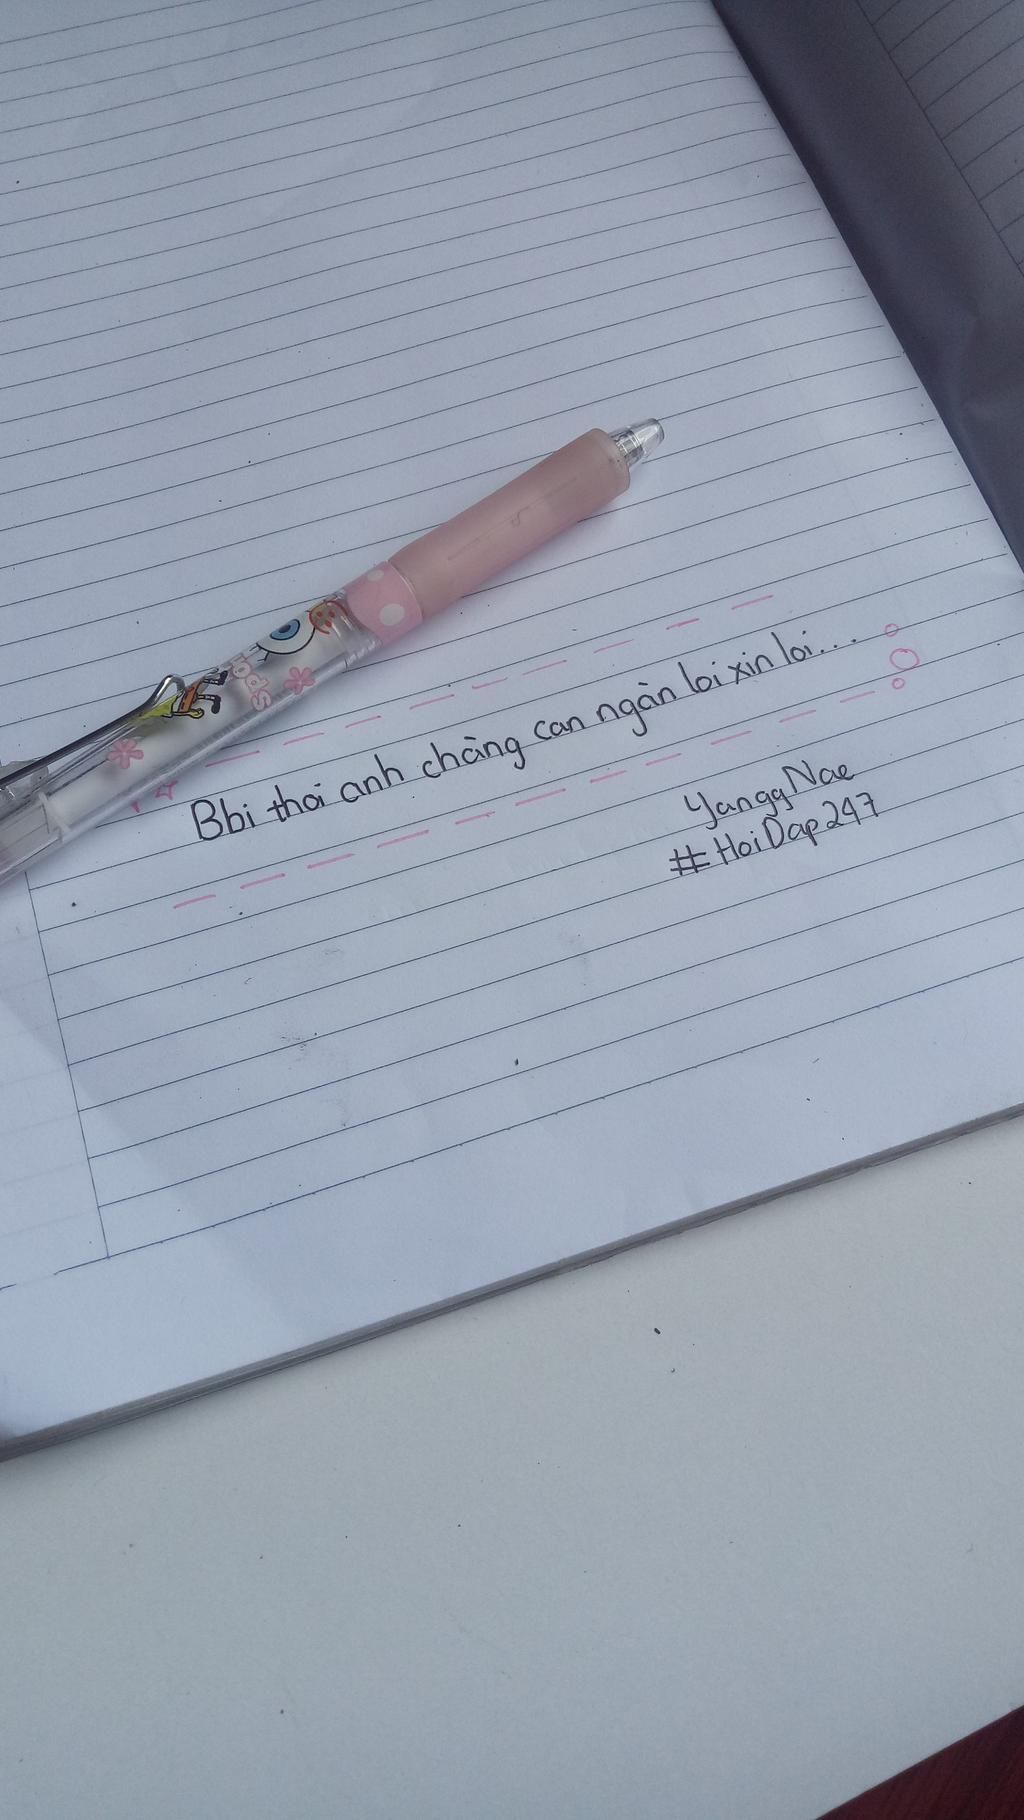 Spo
Bbi thoi anh chàng can ngàn loi xin loi...
YanggNae
#HoiDap247